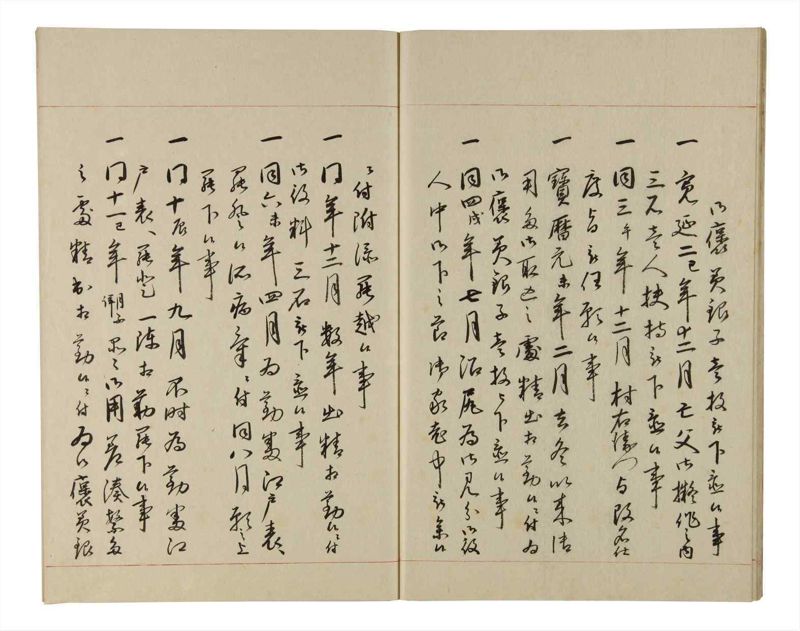 御褒美銀子壱枚被下置候事
一 寛延二巳年十二月亡父御擬作之内
三石壱人扶持被下置候事
一 同三午年十二月村右衛門与改名仕
度旨被任願候事
一 寶暦元未年二月去冬以来御
用多御取込之處精出相勤候ニ付為
御褒美銀子壱枚被下置候事
一 同四戌年七月 為御見分御役
人中御下之節御家老中
ニ付附添罷越候事
一 同年十二月数年出精相勤候ニ付
御役料三石被下置候事
一 同六 年四月為勤番江戸表
罷登候処病氣ニ付同八月願之上
罷下候事
一 同十辰年九月不時為勤番江
戸表罷登一陳相勤罷下候事
一 同十一巳年 御用 湊繁多
之處精出相勤候ニ付為御褒美銀